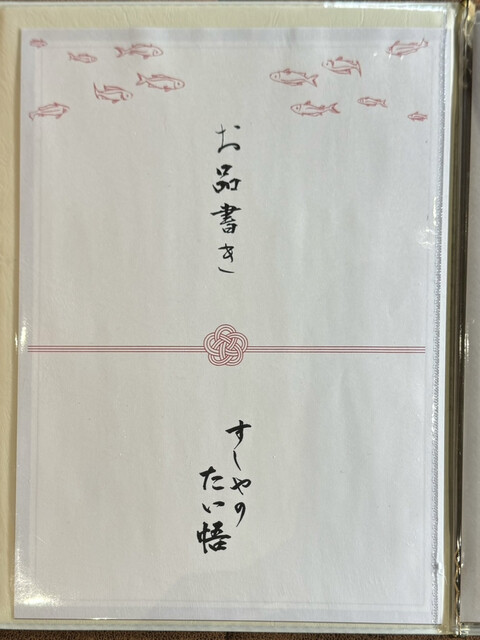 お品書き
すしやの
たい悟